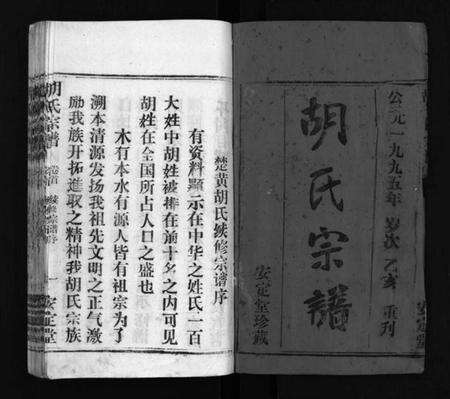 公元一九九五年 岁次 乙亥 重刊
胡氏宗譜
安定堂珍藏
安定堂
楚黄胡氏续修宗谱序
有资料显示在中华之姓氏一百
大姓中胡姓被排在前十名之内可见
胡姓在全国所占人口之盛也
木有本水有源人皆有祖宗为了
溯本清源发扬我祖先文明之正气激
励我族开拓进取之精神我胡氏宗族
胡氏宗谱 卷首 续修宗谱序 一 安定堂